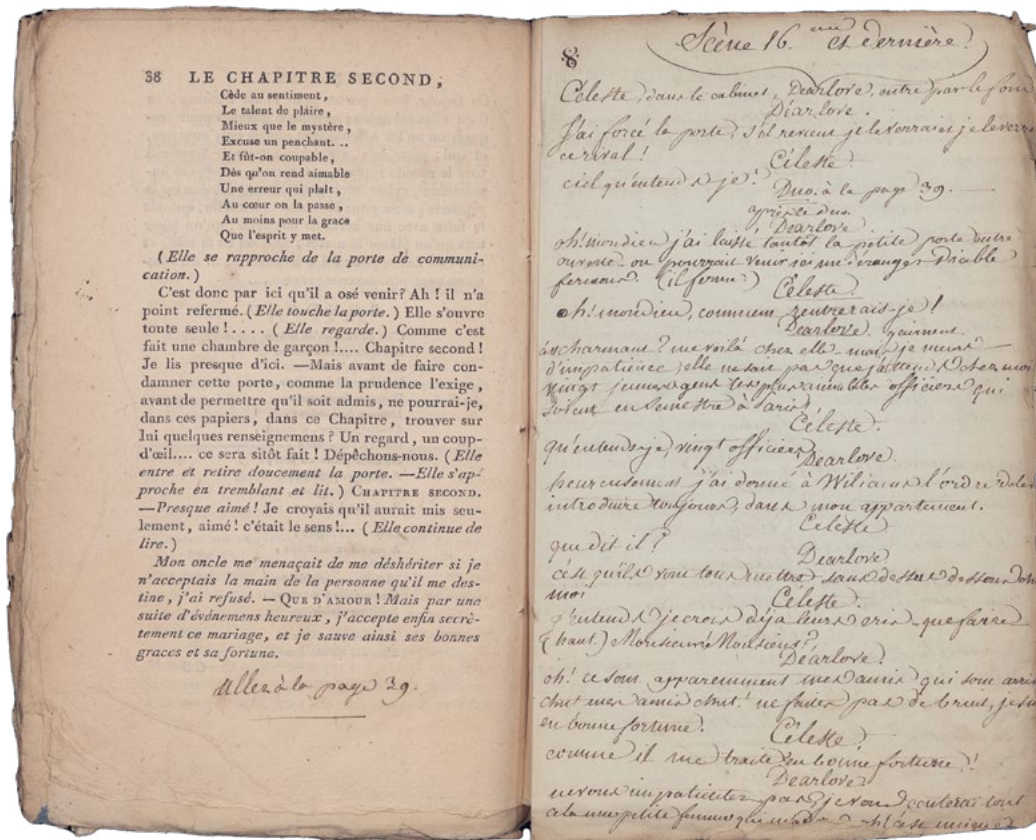 38 LE CHAPITRE SECOND,
Cède au sentiment,
Le talent de plaire,
Mieux que le mystère,
Excuse un penchant. ..
Et fût-on coupable,
Dès qu'on rend aimable
Une erreur qui plaît,
Au cœur on la passe,
Au moins pour la grace
Que l'esprit y met.
(Elle se rapproche de la porte de communi-
cation.)
C'est donc par ici qu'il a osé venir? Ah! il n'a
point refermé. (Elle touche la porte.) Elle s'ouvre
toute seule!.... (Elle regarde.) Comme c'est
fait une chambre de garçon!.... Chapitre second!
Je lis presque d'ici. —Mais avant de faire con-
damner cette porte, comme la prudence l'exige,
avant de permettre qu'il soit admis, ne pourrai-je,
dans ces papiers, dans ce Chapitre, trouver sur
lui quelques renseignemens? Un regard, un coup-
d'œil.... ce sera sitôt fait! Dépêchons-nous. (Elle
entre et retire doucement la porte. —Elle s'ap-
proche en tremblant et lit.) CHAPITRE SECOND.
—Presque aimé! Je croyais qu'il aurait mis seu-
lement, aimé! c'était le sens!... (Elle continue de
lire.)
Mon oncle me menaçait de me déshériter si je
n'acceptais la main de la personne qu'il me des-
tine, j'ai refusé. — QUE D'AMOUR! Mais par une
suite d'événemens heureux, j'accepte enfin secrè-
tement ce mariage, et je sauve ainsi ses bonnes
graces et sa fortune.
Allez à la page 39.
8
Scène 16.eme et dernière.
Céleste, dans le cabinet, Dearlove, entre par le fond
Déarlove.
J'ai forcé la porte, s'il revient je le verrai
ce rival!
Céleste
ciel qu'entends je!
Duo. à la page 39.
après le duo.
Dearlove
oh! mon dieu j'ai laissé tantôt la petite porte entre
ouverte on pourrait venir ici me déranger Diable
fermons. (il ferme)
Céleste.
oh! mon dieu, comment rentrerais-je!
Dearlove gaiment.
charmant? me voilà chez elle mais je meurs
d'impatience, elle ne sait pas que j'attends chez moi
vingt jeunes gens les plus aimables officiers qui
soient en semestre à Paris
Céleste.
qu'entends-je, vingt officiers
Dearlove.
heureusement j'ai donné à Wiliams l'ordre de les
introduire toujours, dans mon appartement.
Céleste
que dit il?
Dearlove
c'est qu'ils vont tous mettre sens dessus dessous chez
moi
Céleste.
j'entends je crois déjà leurs cris que faire
(haut) Monsieur! Monsieur?
Déarlove.
oh! ce sont apparemment mes amis qui sont
chut mes amis chut! ne faites pas de bruit, je suis
en bonne fortune.
Céleste.
comme il me traite en bonne fortune!
Dearlove
ne vous impatientez pas, je vous conterai tout
cela une petite femme oh! c'est unique